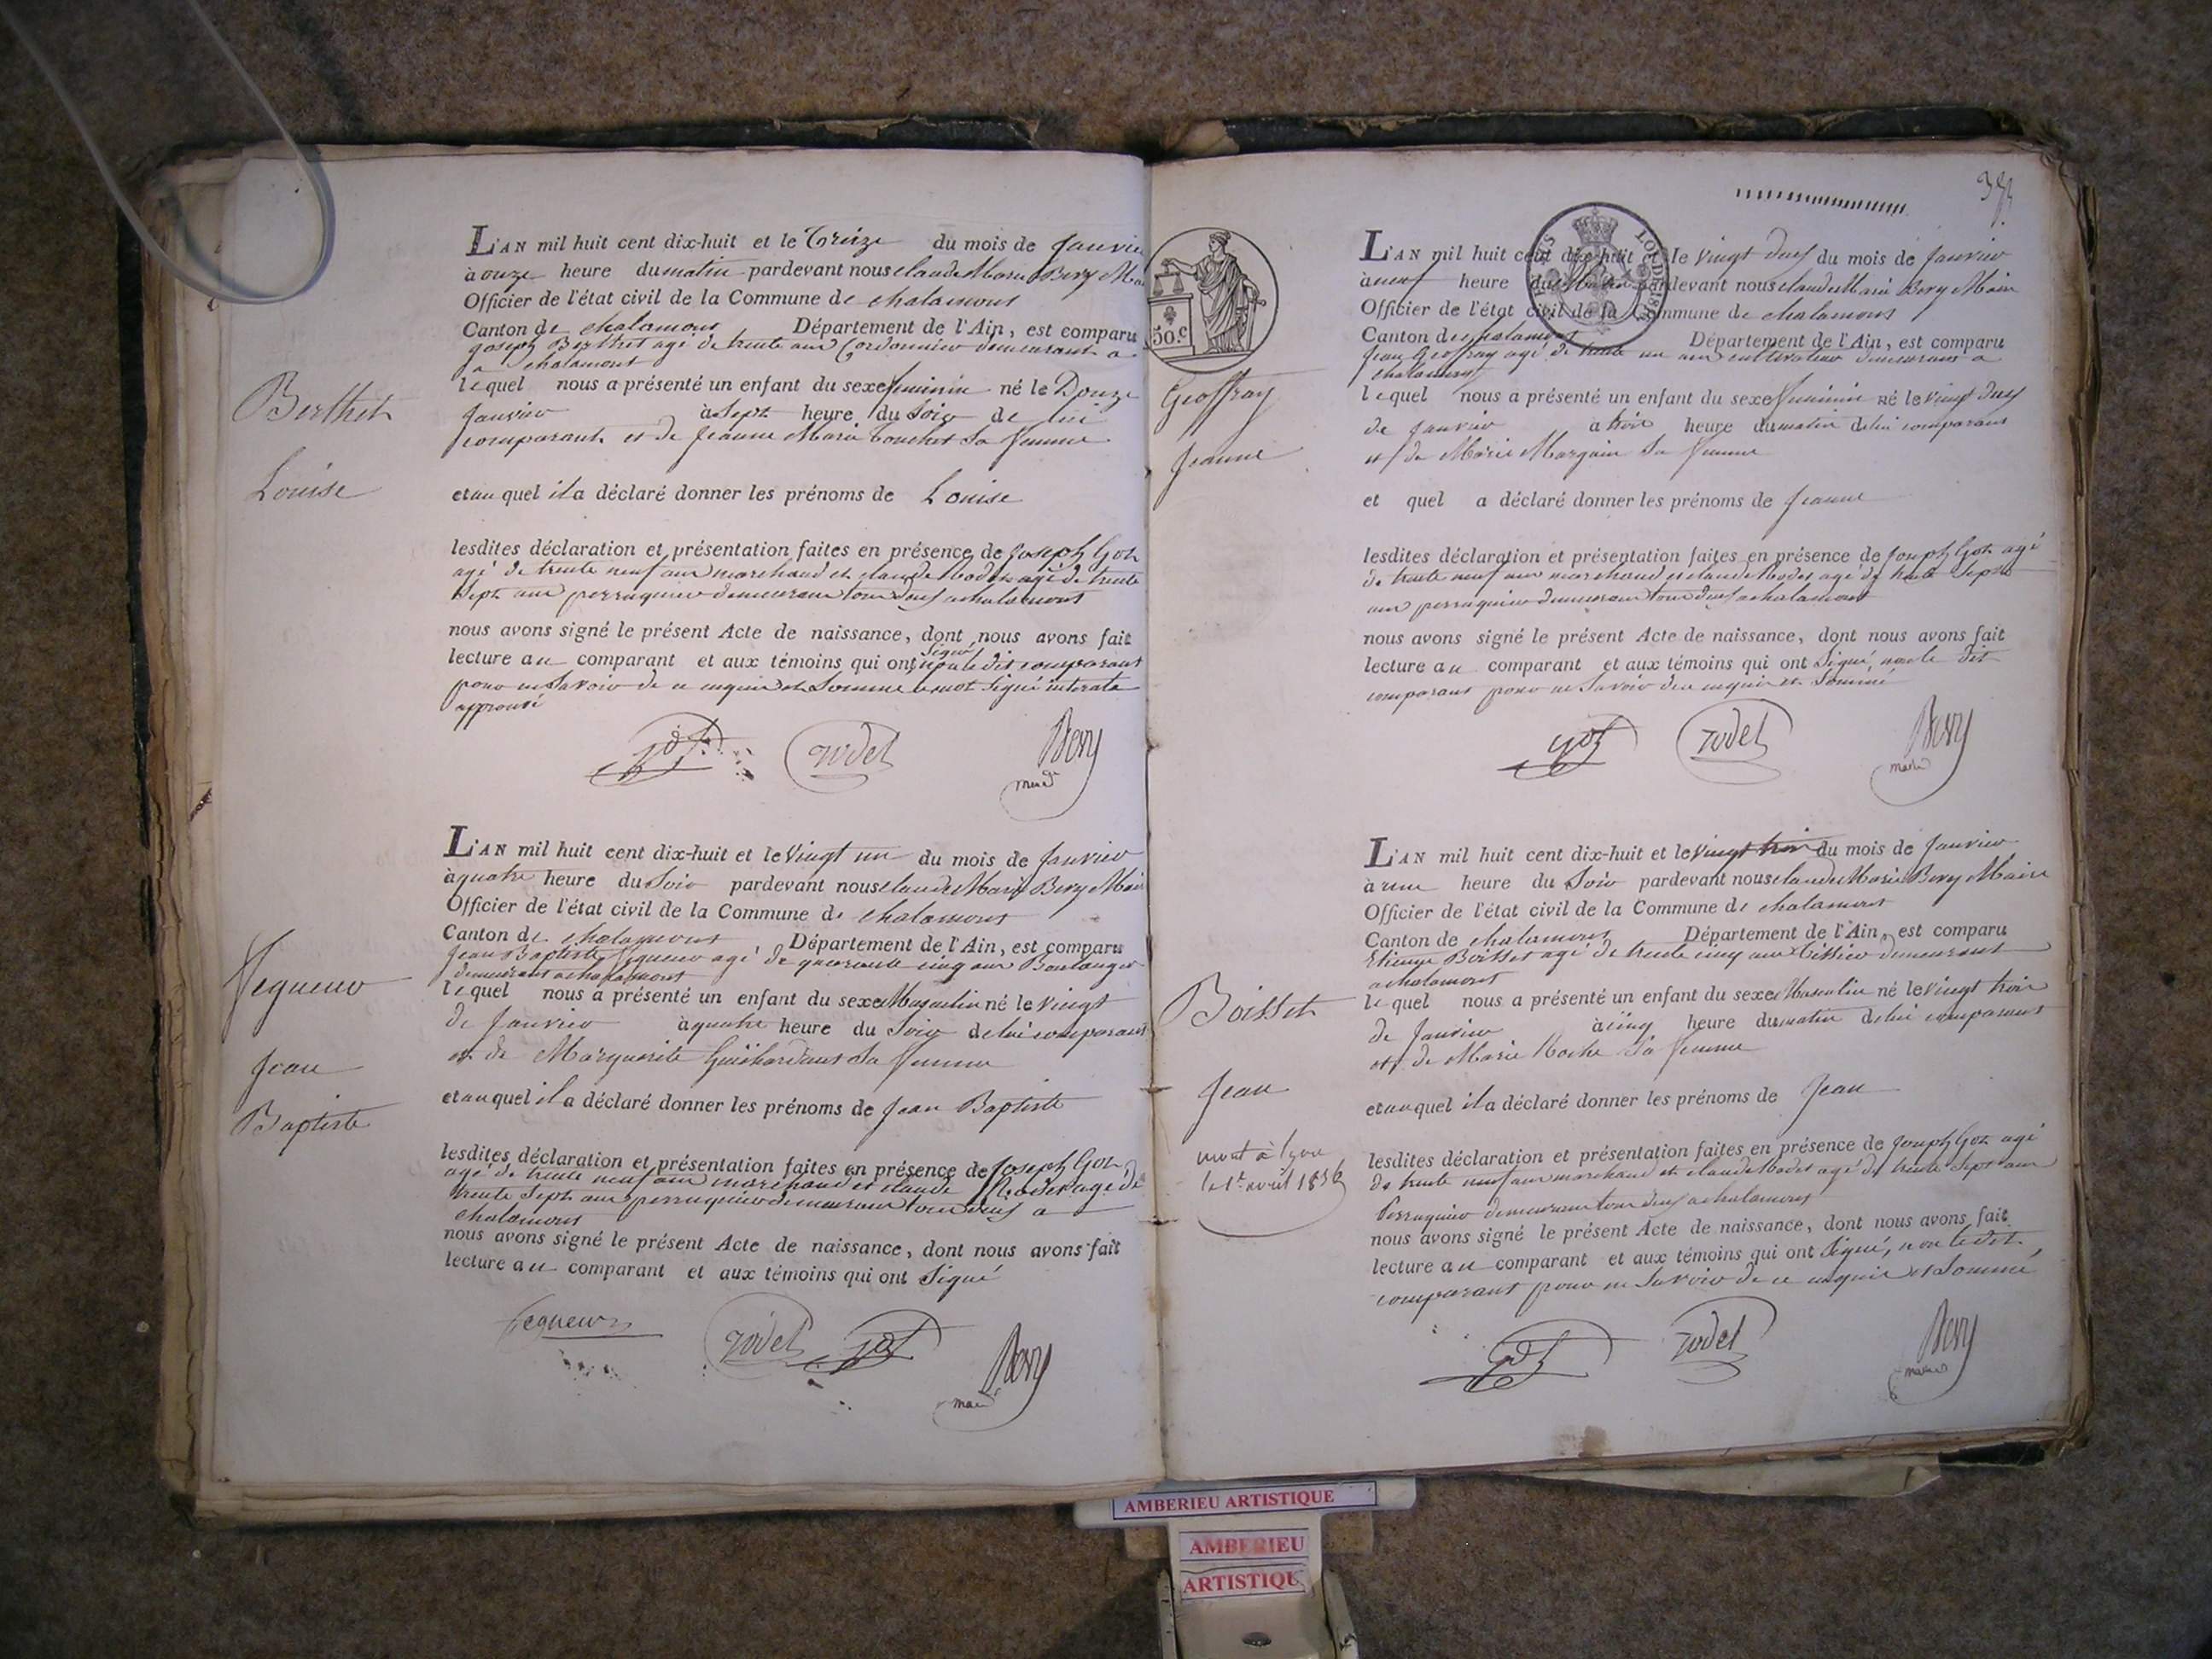 Berthet
Louise
L'AN mil huit cent dix-huit et le treize du mois de Janvier
à onze heure du matin pardevant nous claude Marie Bery Mai
Officier de l'état civil de la Commune de chalamont
Canton de chalamont Département de l'Ain, est comparu
joseph Berthet agé de trente ans Cordonnier demeurant a
a chalamont
lequel nous a présenté un enfant du sexe feminin né le Douze
Janvier à sept heure du soir de lui
comparant et de Jeanne Marie touchet sa femme
et au quel il a déclaré donner les prénoms de Louise
lesdites déclaration et présentation faites en présence de joseph Goz
agé de trente neuf ans marchand et claude Rodet agé de trente
sept ans perruquier demeurant tous deux a chalamont
nous avons signé le présent Acte de naissance, dont nous avons fait
lecture au comparant et aux témoins qui ont signé non le dit comparant
pour ne savoir de ce enquis et sommé le mot signé
approuvé
rodet
Bery
maire
Jean
Baptiste
L'AN mil huit cent dix-huit et le vingt un du mois de Janvier
à quatre heure du soir pardevant nous claude Marie Bery Mair
Officier de l'état civil de la Commune de chalamont
Canton de chalamont Département de l'Ain, est comparu
jean Baptiste agé de quarante cinq ans Boulanger
demeurant a chalamont
lequel nous a présenté un enfant du sexe Masculin né le vingt
de Janvier à quatre heure du soir de lui comparant
et de Marguerite sa femme
et au quel il a déclaré donner les prénoms de Jean Baptiste
lesdites déclaration et présentation faites en présence de joseph Goz
agé de trente neuf ans marchand et claude Rodet agé de
trente sept ans perruquier demeurant tous deux a
chalamont
nous avons signé le présent Acte de naissance, dont nous avons fait
lecture au comparant et aux témoins qui ont signé
rodet
Bery
maire
50 c
LOI DE 1816
Geoffray
Jeanne
L'AN mil huit cent dix-huit et le vingt deux du mois de Janvier
à neuf heure du Matin pardevant nous claude Marie Bery Maire
Officier de l'état civil de la Commune de chalamont
Canton de chalamont Département de l'Ain, est comparu
jean Geoffray agé de trente un ans cultivateur demeurant a
chalamont
lequel nous a présenté un enfant du sexe feminin né le vingt deux
de Janvier à trois heure du matin de lui comparant
et de Marie Margain sa femme
et quel a déclaré donner les prénoms de Jeanne
lesdites déclaration et présentation faites en présence de joseph Goz agé
de trente neuf ans marchand et claude Rodet agé de trente sept
ans perruquier demeurant tous deux a chalamont
nous avons signé le présent Acte de naissance, dont nous avons fait
lecture au comparant et aux témoins qui ont signé, non le dit
comparant pour ne savoir de ce enquis et sommé
goz
rodet
Bery
maire
Boisset
Jean
mort à lyon
le 1er avril 1836
L'AN mil huit cent dix-huit et le vingt trois du mois de Janvier
à une heure du soir pardevant nous claude Marie Bery Maire
Officier de l'état civil de la Commune de chalamont
Canton de chalamont Département de l'Ain, est comparu
Etienne Boisset agé de trente cinq ans tissier demeurant
a chalamont
lequel nous a présenté un enfant du sexe Masculin né le vingt trois
de Janvier à cinq heure du matin de lui comparant
et de Marie Roche sa femme
et au quel il a déclaré donner les prénoms de Jean
lesdites déclaration et présentation faites en présence de joseph Goz agé
de trente neuf ans marchand et claude Rodet agé de trente sept ans
Perruquier demeurant tous deux a chalamont
nous avons signé le présent Acte de naissance, dont nous avons fait
lecture au comparant et aux témoins qui ont signé, non le dit
comparant pour ne savoir de ce enquis et sommé
rodet
Bery
maire
AMBERIEU ARTISTIQUE
AMBERIEU
ARTISTIQUE